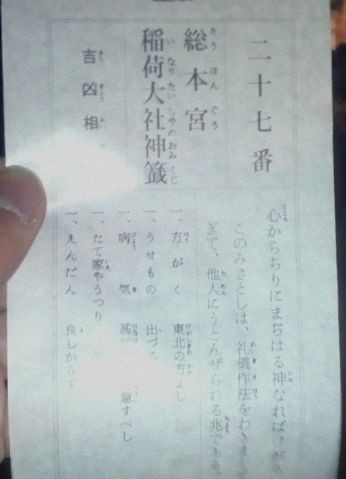 二十七番
総本宮
稲荷大社神籤
吉凶相
心からちりにまじはる神なれば
このみさとしは、礼儀作法をわ
きて、他人にうとんぜられる兆である
一、方がく 東北の方よし
一、うせもの 出づ
一、病気 急すべし
一、たて家やうつり
一、えんだん 良しからず